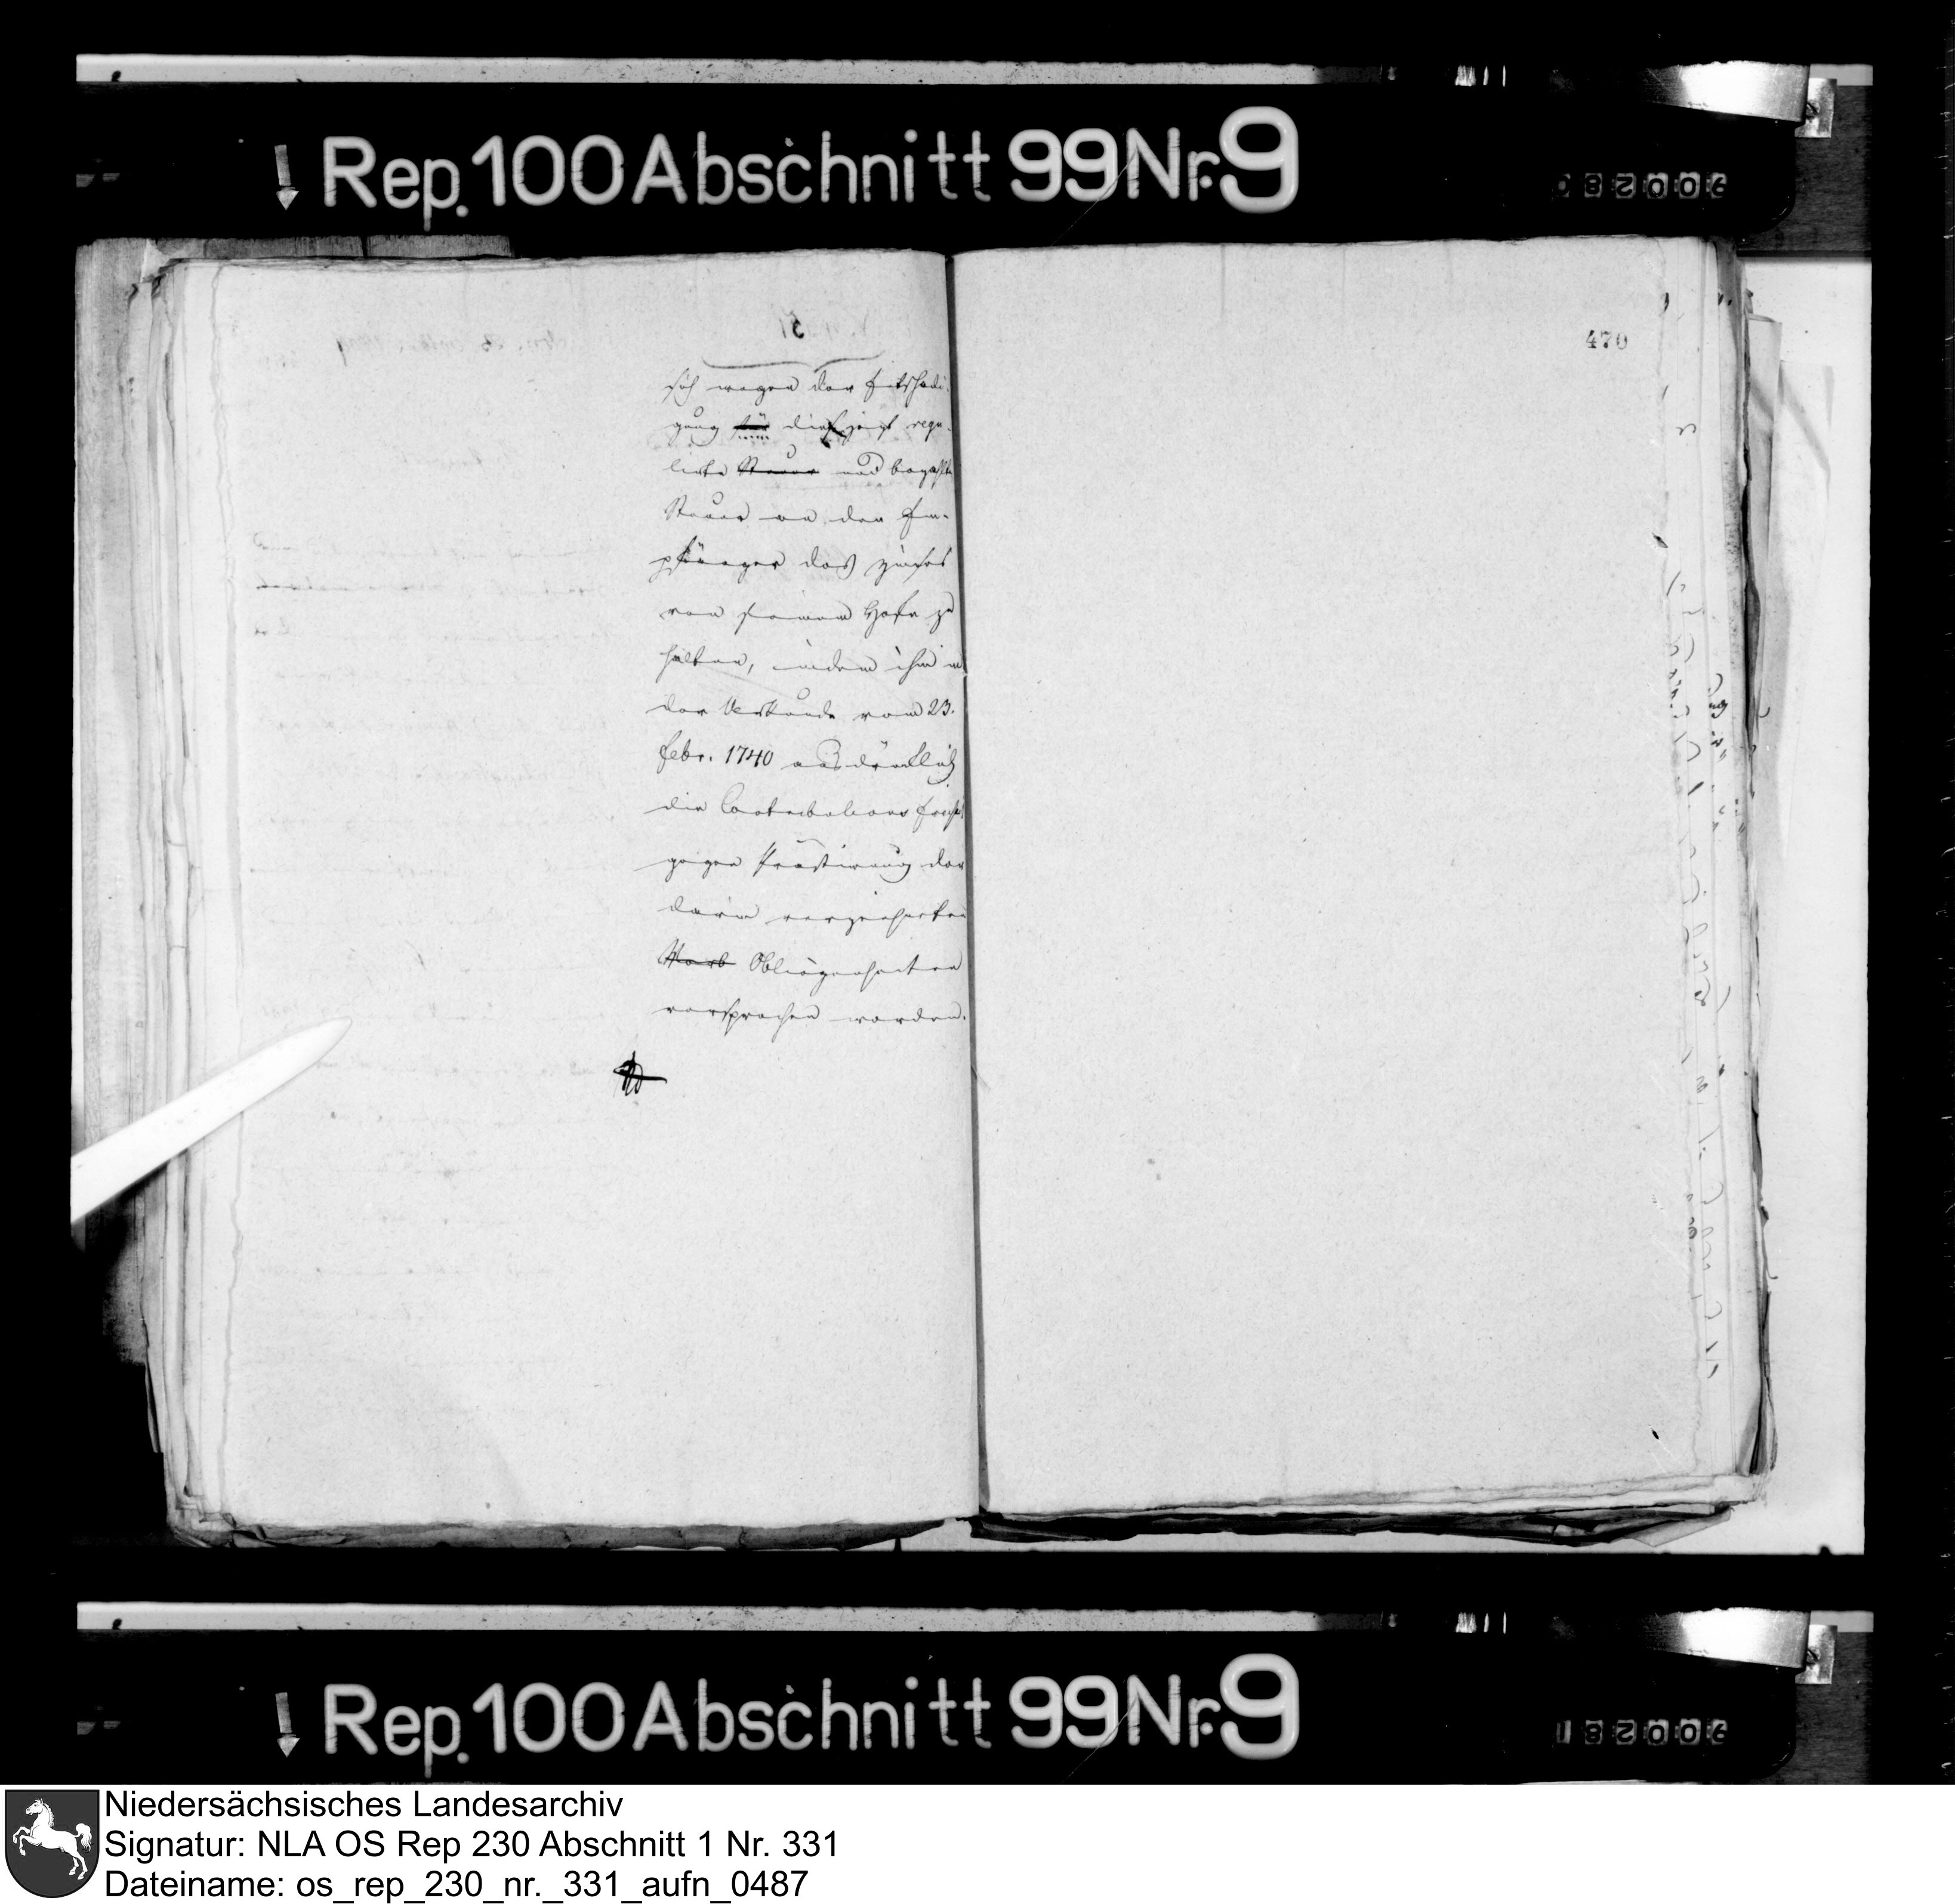 Rep. 100 Abschnitt 99 Nr. 9
470
sich wegen der Entschädi-
gung für die jetzt regu-
lirte Steuer und bezahlte
Steuer an den Em-
pfänger des Zinses
von seinem Hofe zu
halten, indem ihm in
der Urkunde vom 23.
Febr. 1740 ausdrücklich
die Contributions freiheit
gegen Prästirung der
darin verzeichneten
Obliegenheiten
versprochen worden.
Rep. 100 Abschnitt 99 Nr. 9
Niedersächsisches Landesarchiv
Signatur: NLA OS Rep 230 Abschnitt 1 Nr. 331
Dateiname: os_rep_230_nr._331_aufn_0487